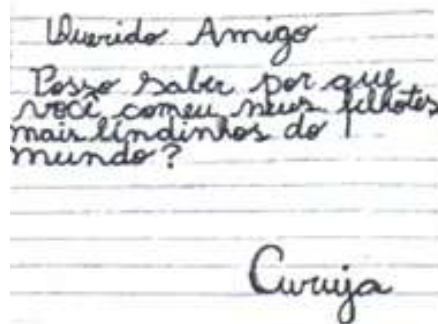 Querido Amigo
Posso saber por que
você comeu meus filhotes
mais lindinhos do
mundo?
Curuja